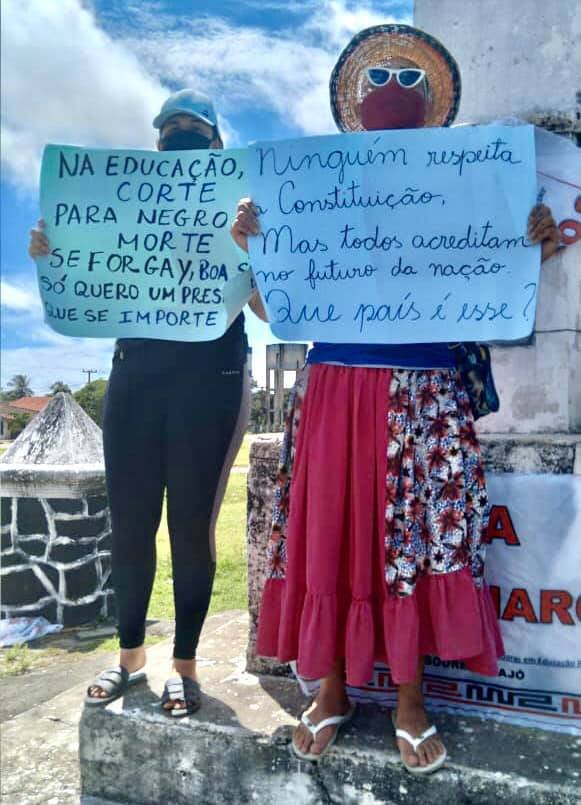 NA EDUCAÇÃO,
CORTE
PARA NEGRO
MORTE
SE FOR GAY, BOA S
SÓ QUERO UM PRES
QUE SE IMPORTE
Ninguém respeita
a Constituição,
Mas todos acreditam
no futuro da nação.
Que país é esse?
A
JARO
em Educação
SOURE
AJÓ